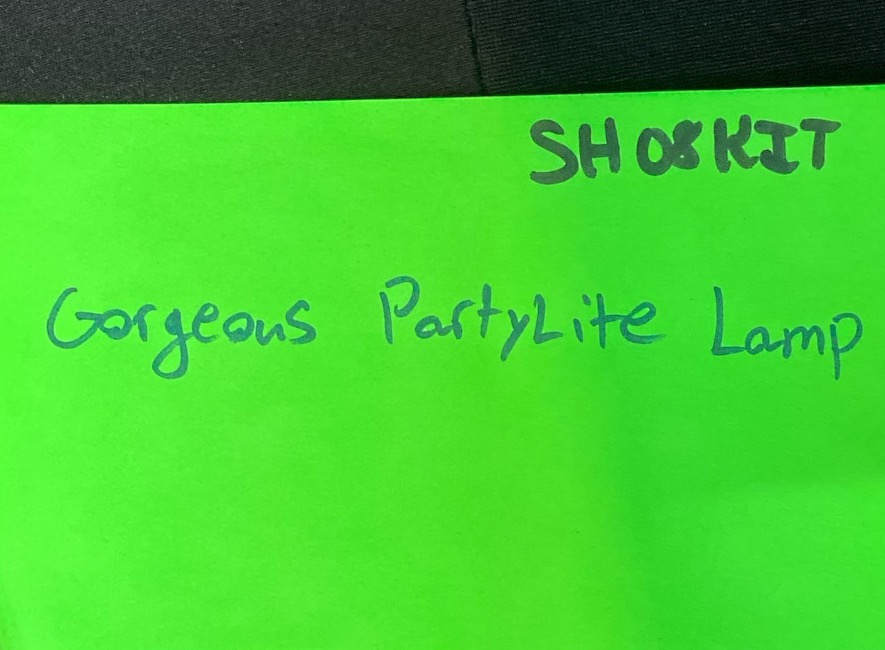 SH08KIT
Gorgeous PartyLite Lamp